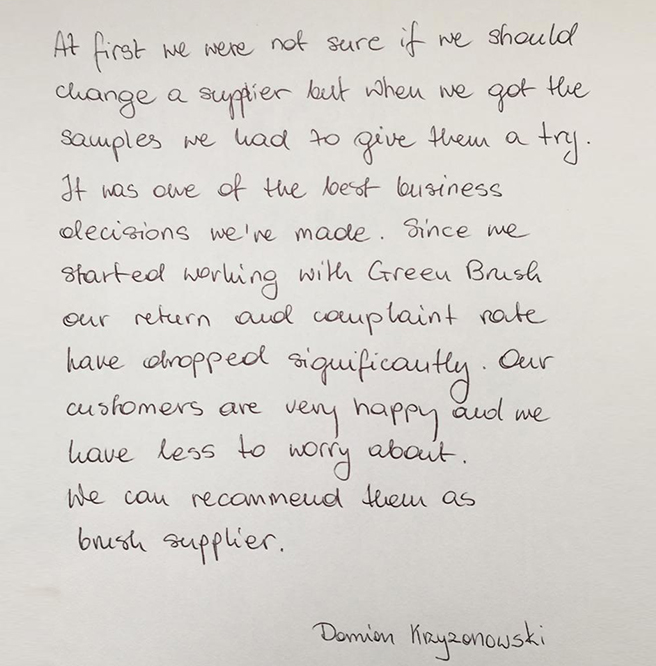 At first we were not sure if we should
change a supplier but when we got the
samples we had to give them a try.
It was one of the best business
decisions we've made. Since we
started working with Green Brush
our return and complaint rate
have dropped significantly. Our
customers are very happy and we
have less to worry about.
We can recommend them as
brush supplier.
Damian Krzyzanowski